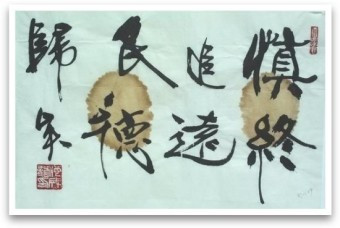 慎終
追遠
民德
歸厚